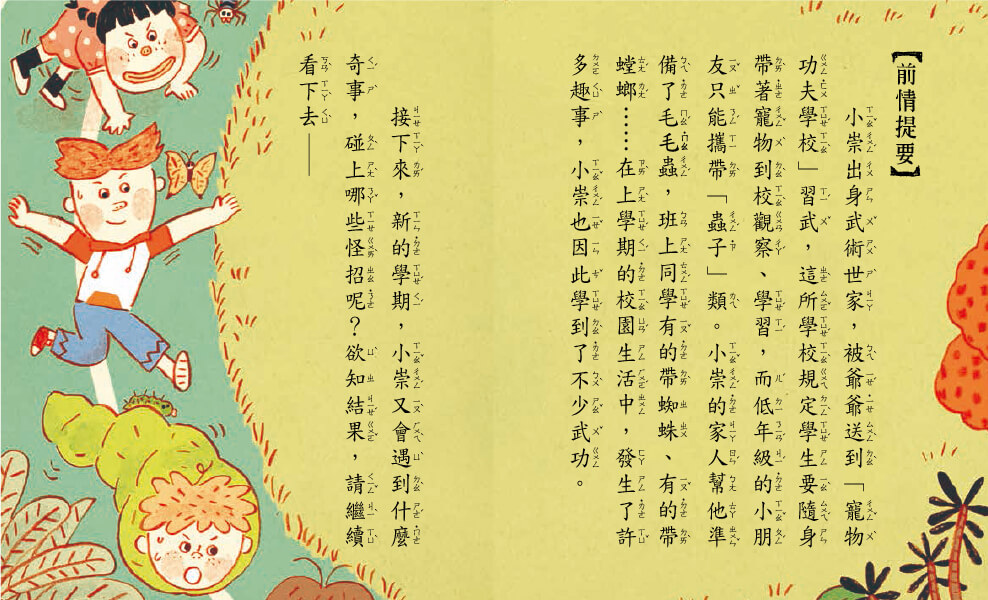 【前情提要】
小崇出身武術世家，被爺爺送到「寵物
功夫學校」習武，這所學校規定學生要隨身
帶著寵物到校觀察、學習，而低年級的小朋
友只能攜帶「蟲子」類。小崇的家人幫他準
備了毛毛蟲，班上同學有的帶蜘蛛、有的帶
螳螂……在上學期的校園生活中，發生了許
多趣事，小崇也因此學到了不少武功。
接下來，新的學期，小崇又會遇到什麼
奇事，碰上哪些怪招呢？欲知結果，請繼續
看下去——